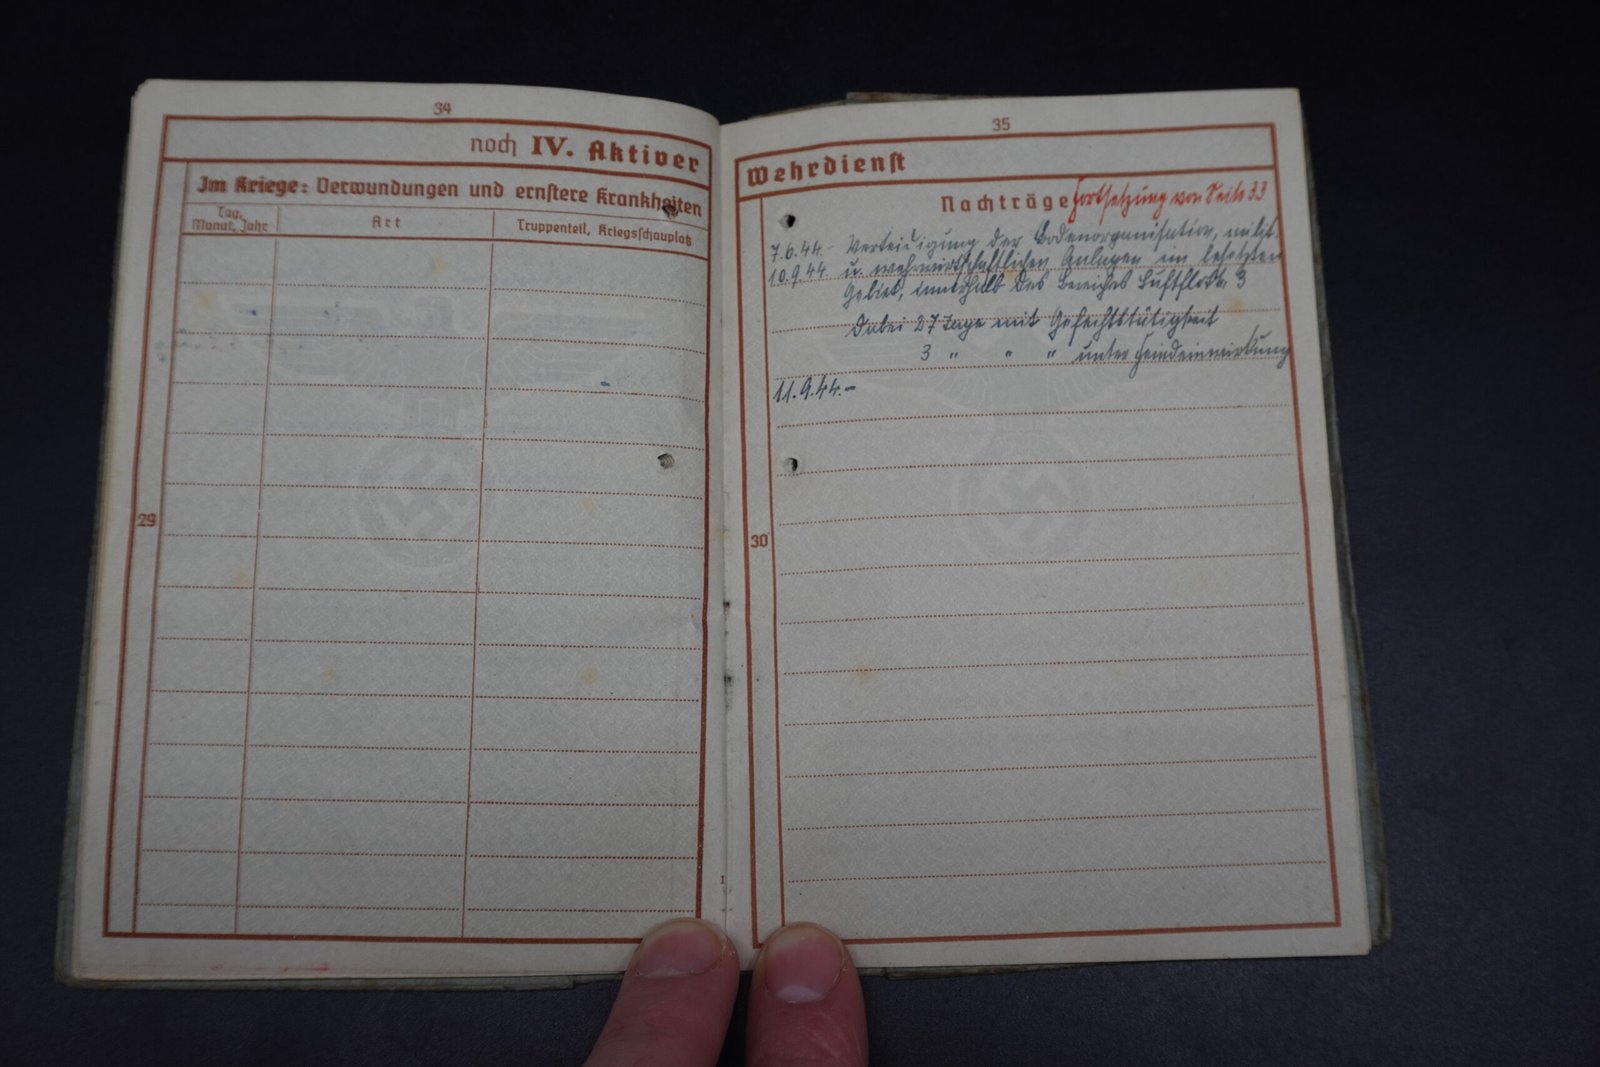 34
noch IV. Aktiver
Im Kriege: Verwundungen und ernstere Krankheiten
Tag, Monat, Jahr
Art
Truppenteil, Kriegsschauplatz
29
35
Wehrdienst
Nachträge Fortsetzung von Seite 33
7.6.44 - Verteidigung der Bodenorganisation, milit.
10.9.44. u. wehrwirtschaftlichen Anlagen im besetzten
Gebiet, innerhalb des Bereiches Luftflotte 3
Dabei 27 Tage mit Gefechtstätigkeit
3 " " " unter Feindeinwirkung
11.9.44.-
30
1